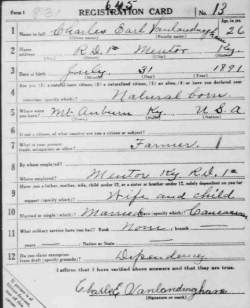 Form 1 REGISTRATION CARD No. 13
645
1 Name in full Charles Earl Vanlandingham Age, in yrs. 26
2 Home address R.D. 1 Mentor Ky.
3 Date of birth July 31 1891
4 Natural born
5 Where were you born? Mt Auburn Ky U.S.A
6 If not a citizen, of what country are you a citizen or subject?
7 What is your present trade, occupation, or office? Farmer
8 By whom employed?
Where employed? Mentor Ky R.D. 1
9 Have you a father, mother, wife, child under 12, or a sister or brother under 12, solely dependent on you for support (specify which)? Wife and child
10 Married or single (which)? Married Race (specify which)? Caucasian
11 What military service have you had? Rank None branch
years Nation or State
12 Do you claim exemption from draft (specify grounds)? Dependency
I affirm that I have verified above answers and that they are true.
Charles E Vanlandingham
(Signature or mark)